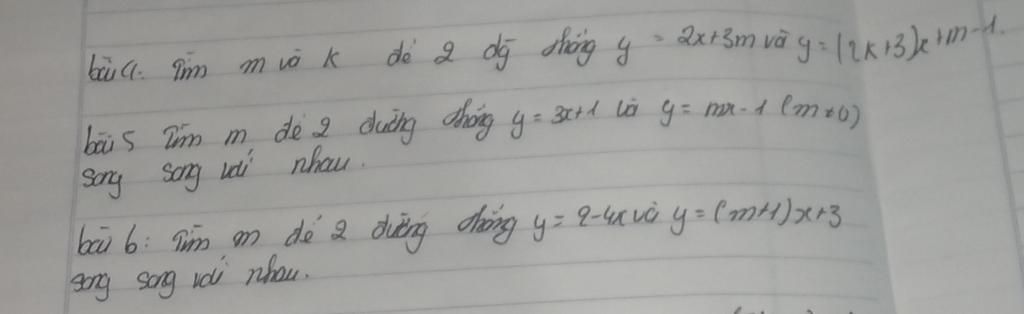 bài 4: Tìm m và k để 2 đg thẳng y = 2x+3m và y = (2k+3)x+m-1.
bài 5 Tìm m để 2 đường thẳng y = 3x+1 và y = mx-1 (m≠0)
song song với nhau.
bài 6: Tìm m để 2 đường thẳng y = 2-4x và y = (m+1)x+3
song song với nhau.